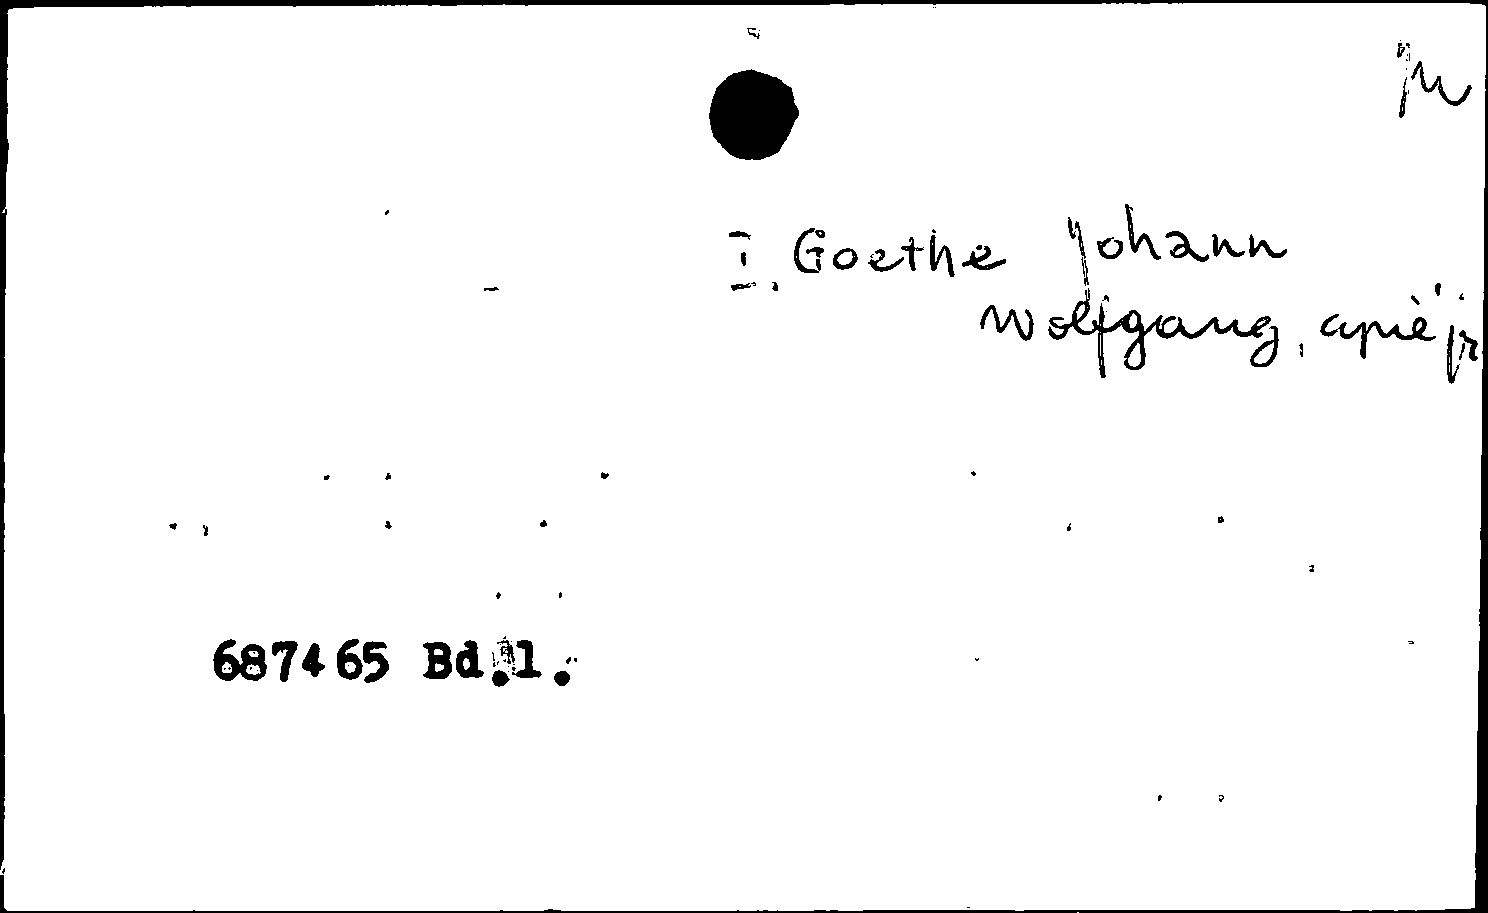 I. Goethe Johann
Wolfgang,
687465 Bd.1.